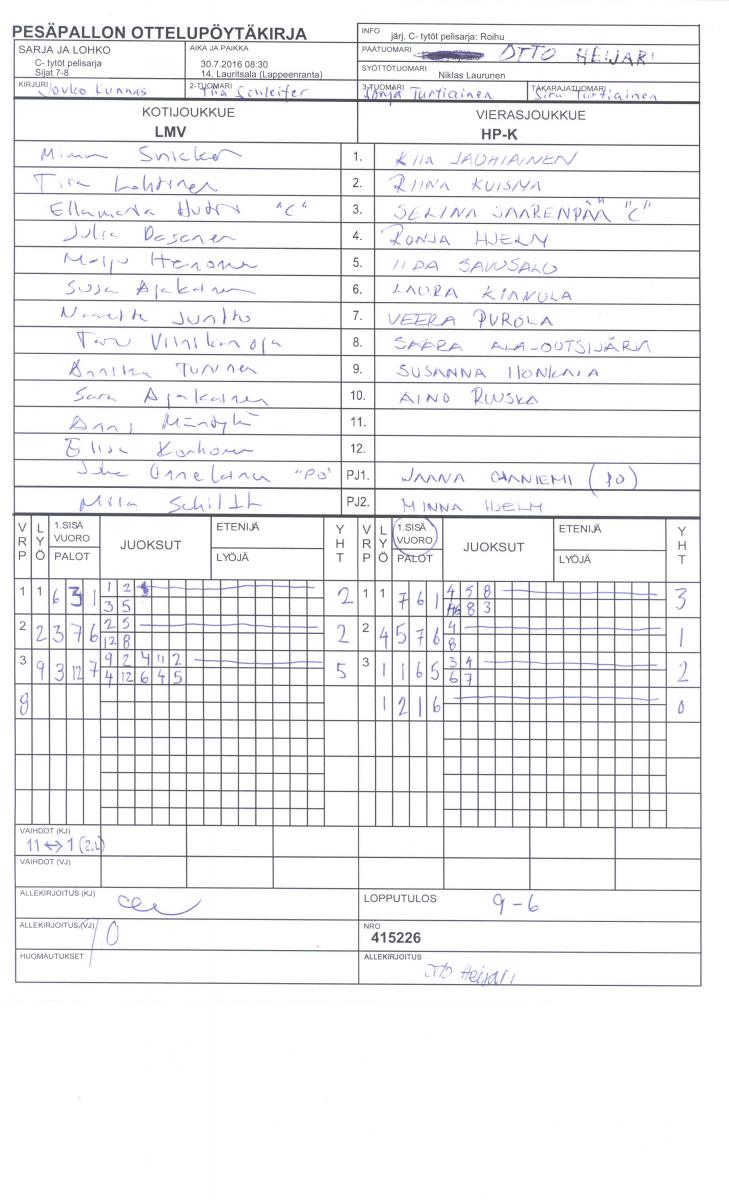 PESÄPALLON OTTELUPÖYTÄKIRJA
INFO järj. C- tytöt pelisarja: Roihu
SARJA JA LOHKO
C- tytöt pelisarja
Sijat 7-8
AIKA JA PAIKKA
30.7.2016 08:30
14. Lauritsala (Lappeenranta)
PÄÄTUOMARI OTTO HEIJARI
SYÖTTÖTUOMARI Niklas Laurunen
KIRJURI Jouko Kunnas
2-TUOMARI Tiia Schleifer
3-TUOMARI Turtiainen
TAKARAJATUOMARI Siru Turtiainen
KOTIJOUKKUE
LMV
VIERASJOUKKUE
HP-K
1. KIIA JAUHIAINEN
Tiia Lahtinen 2. RIINA KUISMA
"C" 3. SELINA SAARENPÄÄ "C"
Julia 4. RONJA HJELM
5. IIDA SAVUSALO
Susa Ajakainen 6. LAURA KINNULA
7. VEERA PUROLA
8. SAARA ALA-OUTSIJÄRVI
Annika Turunen 9. SUSANNA HONKALA
Sara Ajakainen 10. AINO RUUSKA
11.
Elisa Korhonen 12.
"PO" PJ1. JAANA (PO)
Milla Schildt PJ2. MINNA HJELM
VRP LYÖ 1.SISÄ VUORO PALOT JUOKSUT ETENIJÄ LYÖJÄ YHT
VRP LYÖ 1.SISÄ VUORO PALOT JUOKSUT ETENIJÄ LYÖJÄ YHT
1 1 6 3 1 1 2 2 1 1 7 6 1 4 5 8 3
3 5 8 3
2 2 3 7 6 2 5 2 2 4 5 7 6 4 1
12 8 8
3 9 3 12 7 9 2 4 11 2 5 3 1 1 6 5 3 4 2
4 12 6 4 5 6 7
8 1 2 1 6 0
VAIHDOT (KJ)
11 ↔ 1 (2.L)
VAIHDOT (VJ)
ALLEKIRJOITUS (KJ)
LOPPUTULOS 9-6
ALLEKIRJOITUS (VJ)
NRO
415226
HUOMAUTUKSET
ALLEKIRJOITUS
Otto Heijari